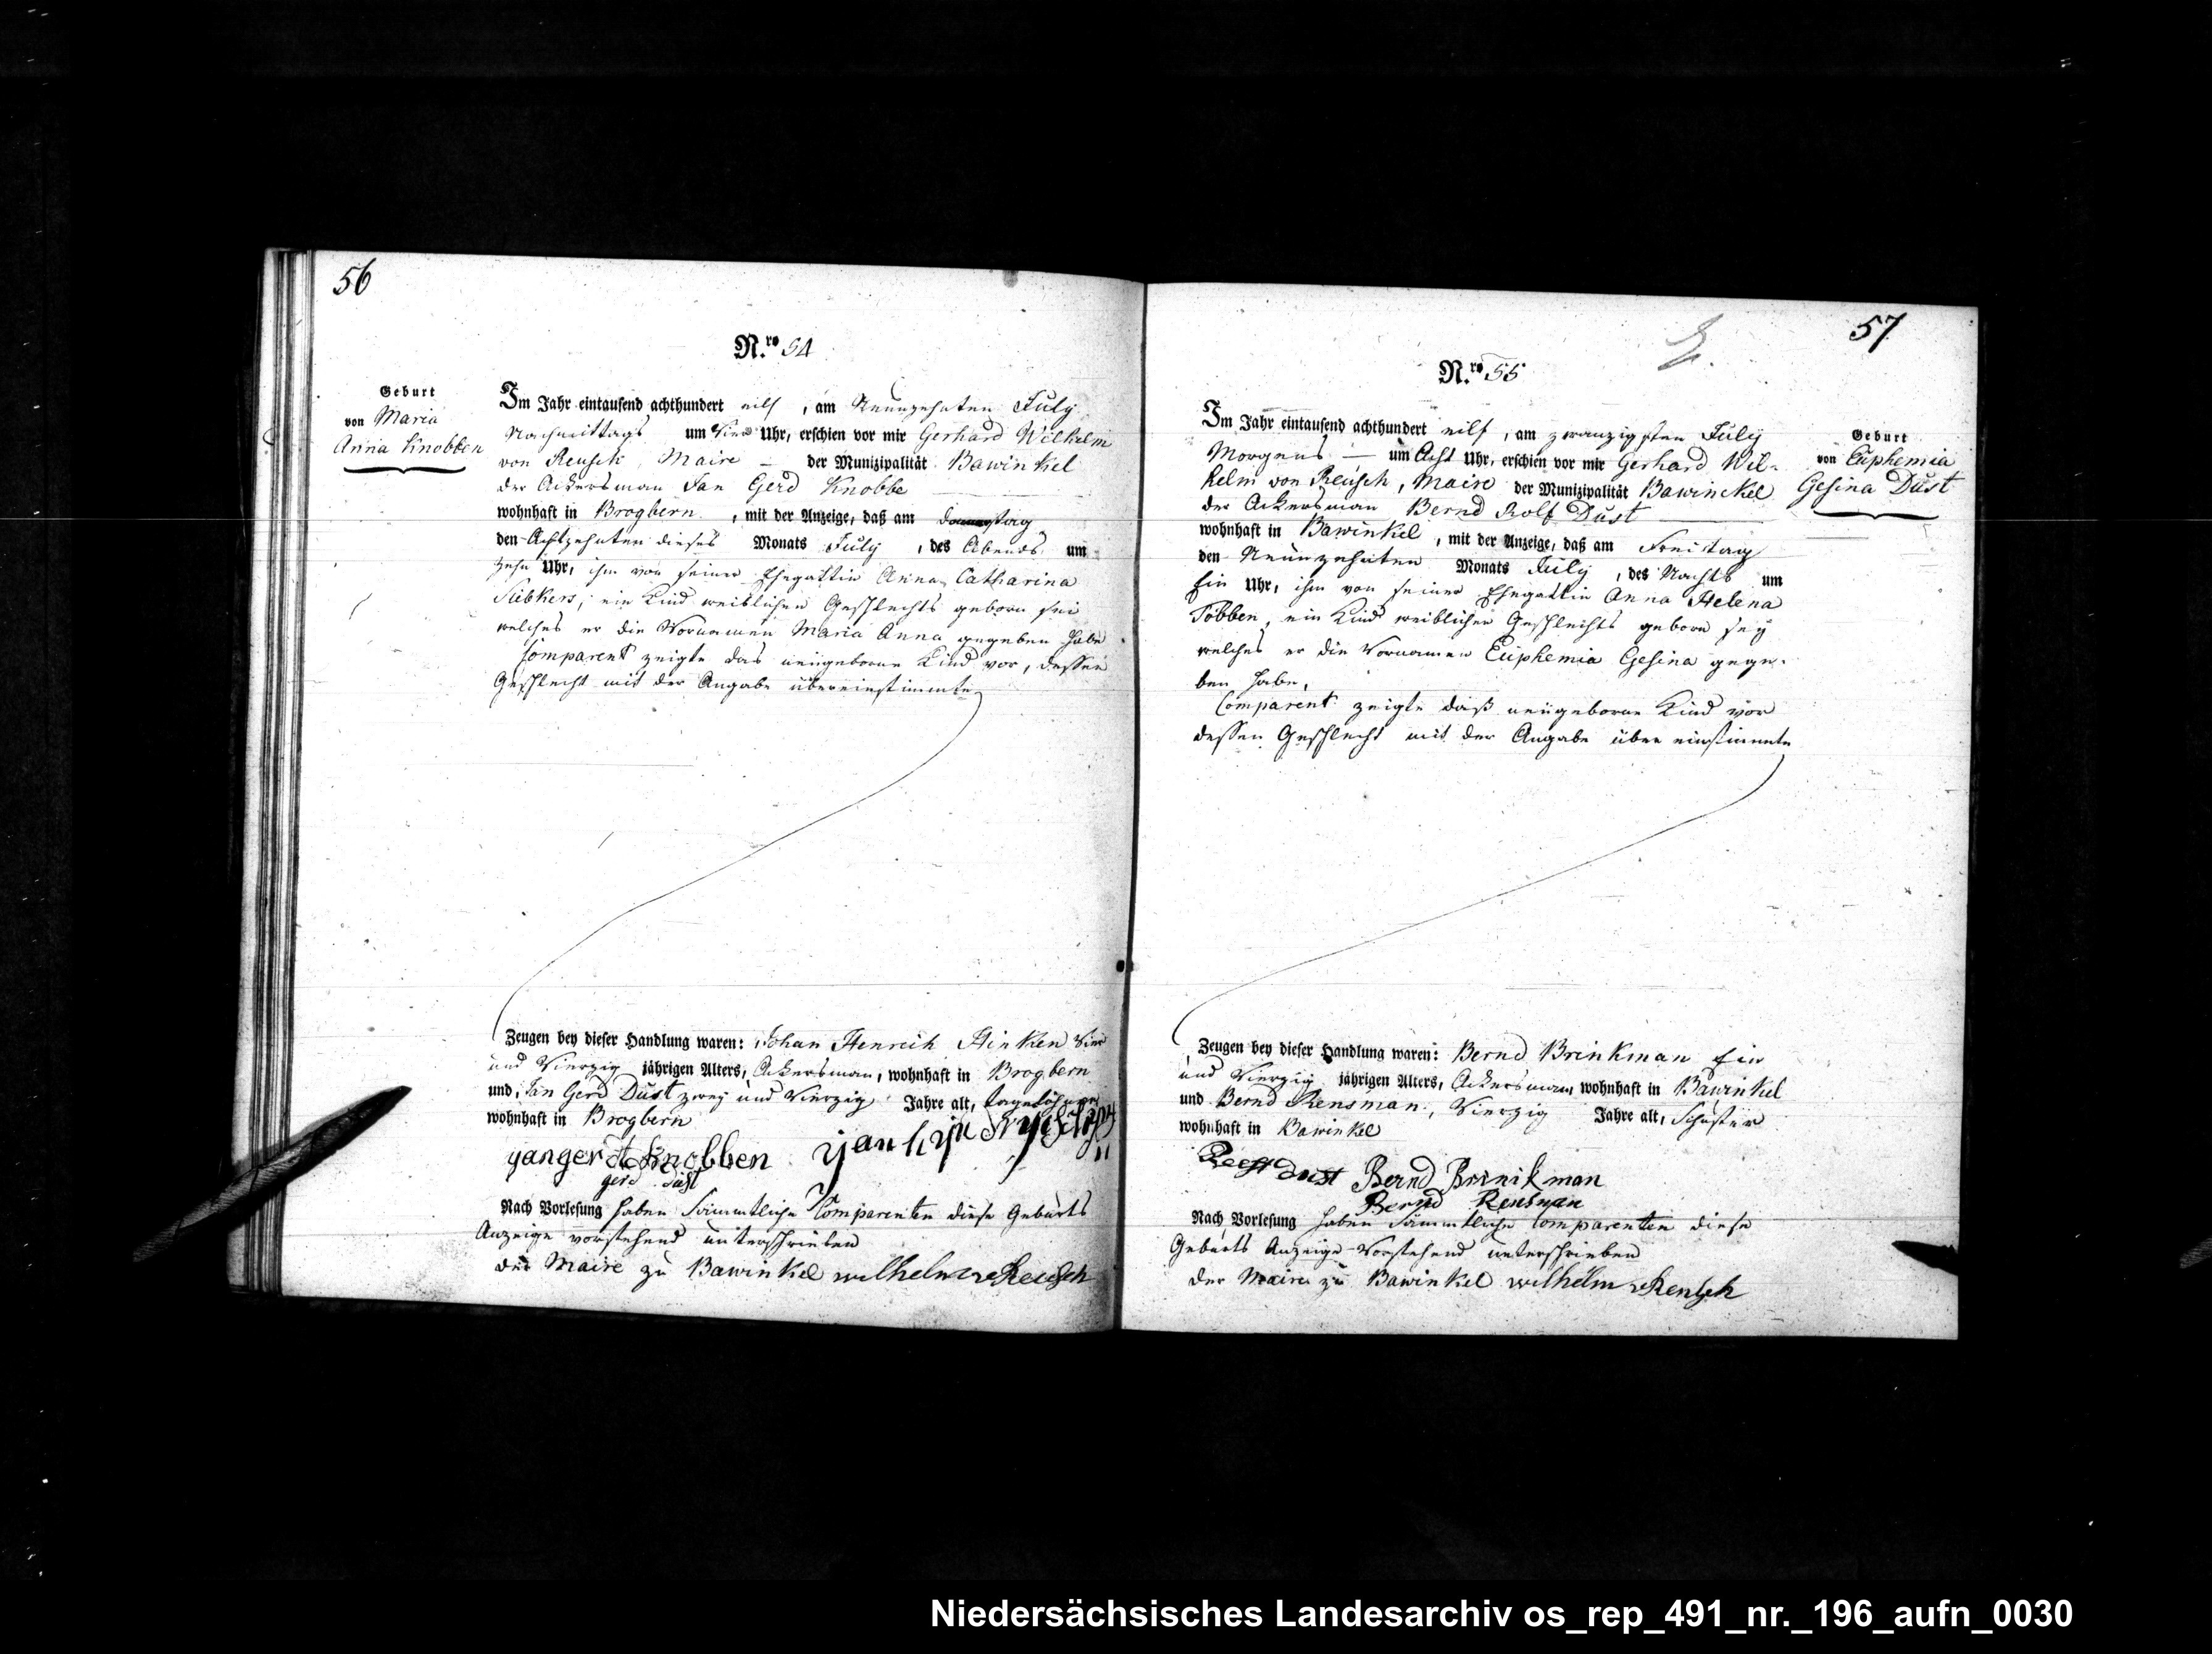 56
N.ro 54
Geburt
von Maria
Anna Knobben
Im Jahr eintausend achthundert eilf, am Neunzehnten July
Nachmittags um Vier Uhr, erschien vor mir Gerhard Wilhelm
von Reusch, Maire der Munizipalität Bawinkel
der Ackersman Jan Gerd Knobbe
wohnhaft in Brogbern, mit der Anzeige, daß am
den Achtzehnten dieses Monats July, des Abends um
Zehn Uhr, ihm von seiner Ehegattin Anna Catharina
ein Kind weiblichen Geschlechts geborn sei
welches er die Vornamen Maria Anna gegeben habe
Comparent zeigte das neügeborne Kind vor, dessen
Geschlecht mit der Angabe übereinstimmte
Zeugen bey dieser Handlung waren: Johan Henrich Hinken Vier
und Vierzig jährigen Alters, Ackersman, wohnhaft in Brogbern
und Jan Gerd Düst zwey und Vierzig Jahre alt, tagelöhner
wohnhaft in Brogbern
yanger dt Knobben
gerd düst
Nach Vorlesung haben sämmtliche Comparenten diese Geburts
Anzeige vorstehend unterschrieben
der Maire zu Bawinkel wilhelm v Reusch
57
N.ro 55
Geburt
von Euphemia
Gesina Düst
Im Jahr eintausend achthundert eilf, am zwanzigsten July
Morgens — um Acht Uhr, erschien vor mir Gerhard Wil-
helm von Reusch, Maire der Munizipalität Bawinckel
der Ackersman Bernd Rolf Düst
wohnhaft in Bawinkel, mit der Anzeige, daß am Freitag
den Neunzehnten Monats July, des Nachts um
Ein Uhr, ihm von seiner Ehegattin Anna Helena
Többen, ein Kind weiblichen Geschlechts geborn sey
welches er die Vornamen Euphemia Gesina gege-
ben habe,
Comparent zeigte daß neügeborne Kind vor
dessen Geschlecht mit der Angabe über einstimmte
Zeugen bey dieser Handlung waren: Bernd Brinkman Ein
und Vierzig jährigen Alters, Ackersman, wohnhaft in Bawinkel
und Bernd Rensman, Vierzig Jahre alt, Schuster
wohnhaft in Bawinkel
dust Bernd Brinikman
Bernd Rensman
Nach Vorlesung haben sämmtliche Comparenten diese
Geburts Anzeige Vorstehend unterschrieben
der Maire zu Bawinkel wilhelm v Reusch
Niedersächsisches Landesarchiv os_rep_491_nr._196_aufn_0030